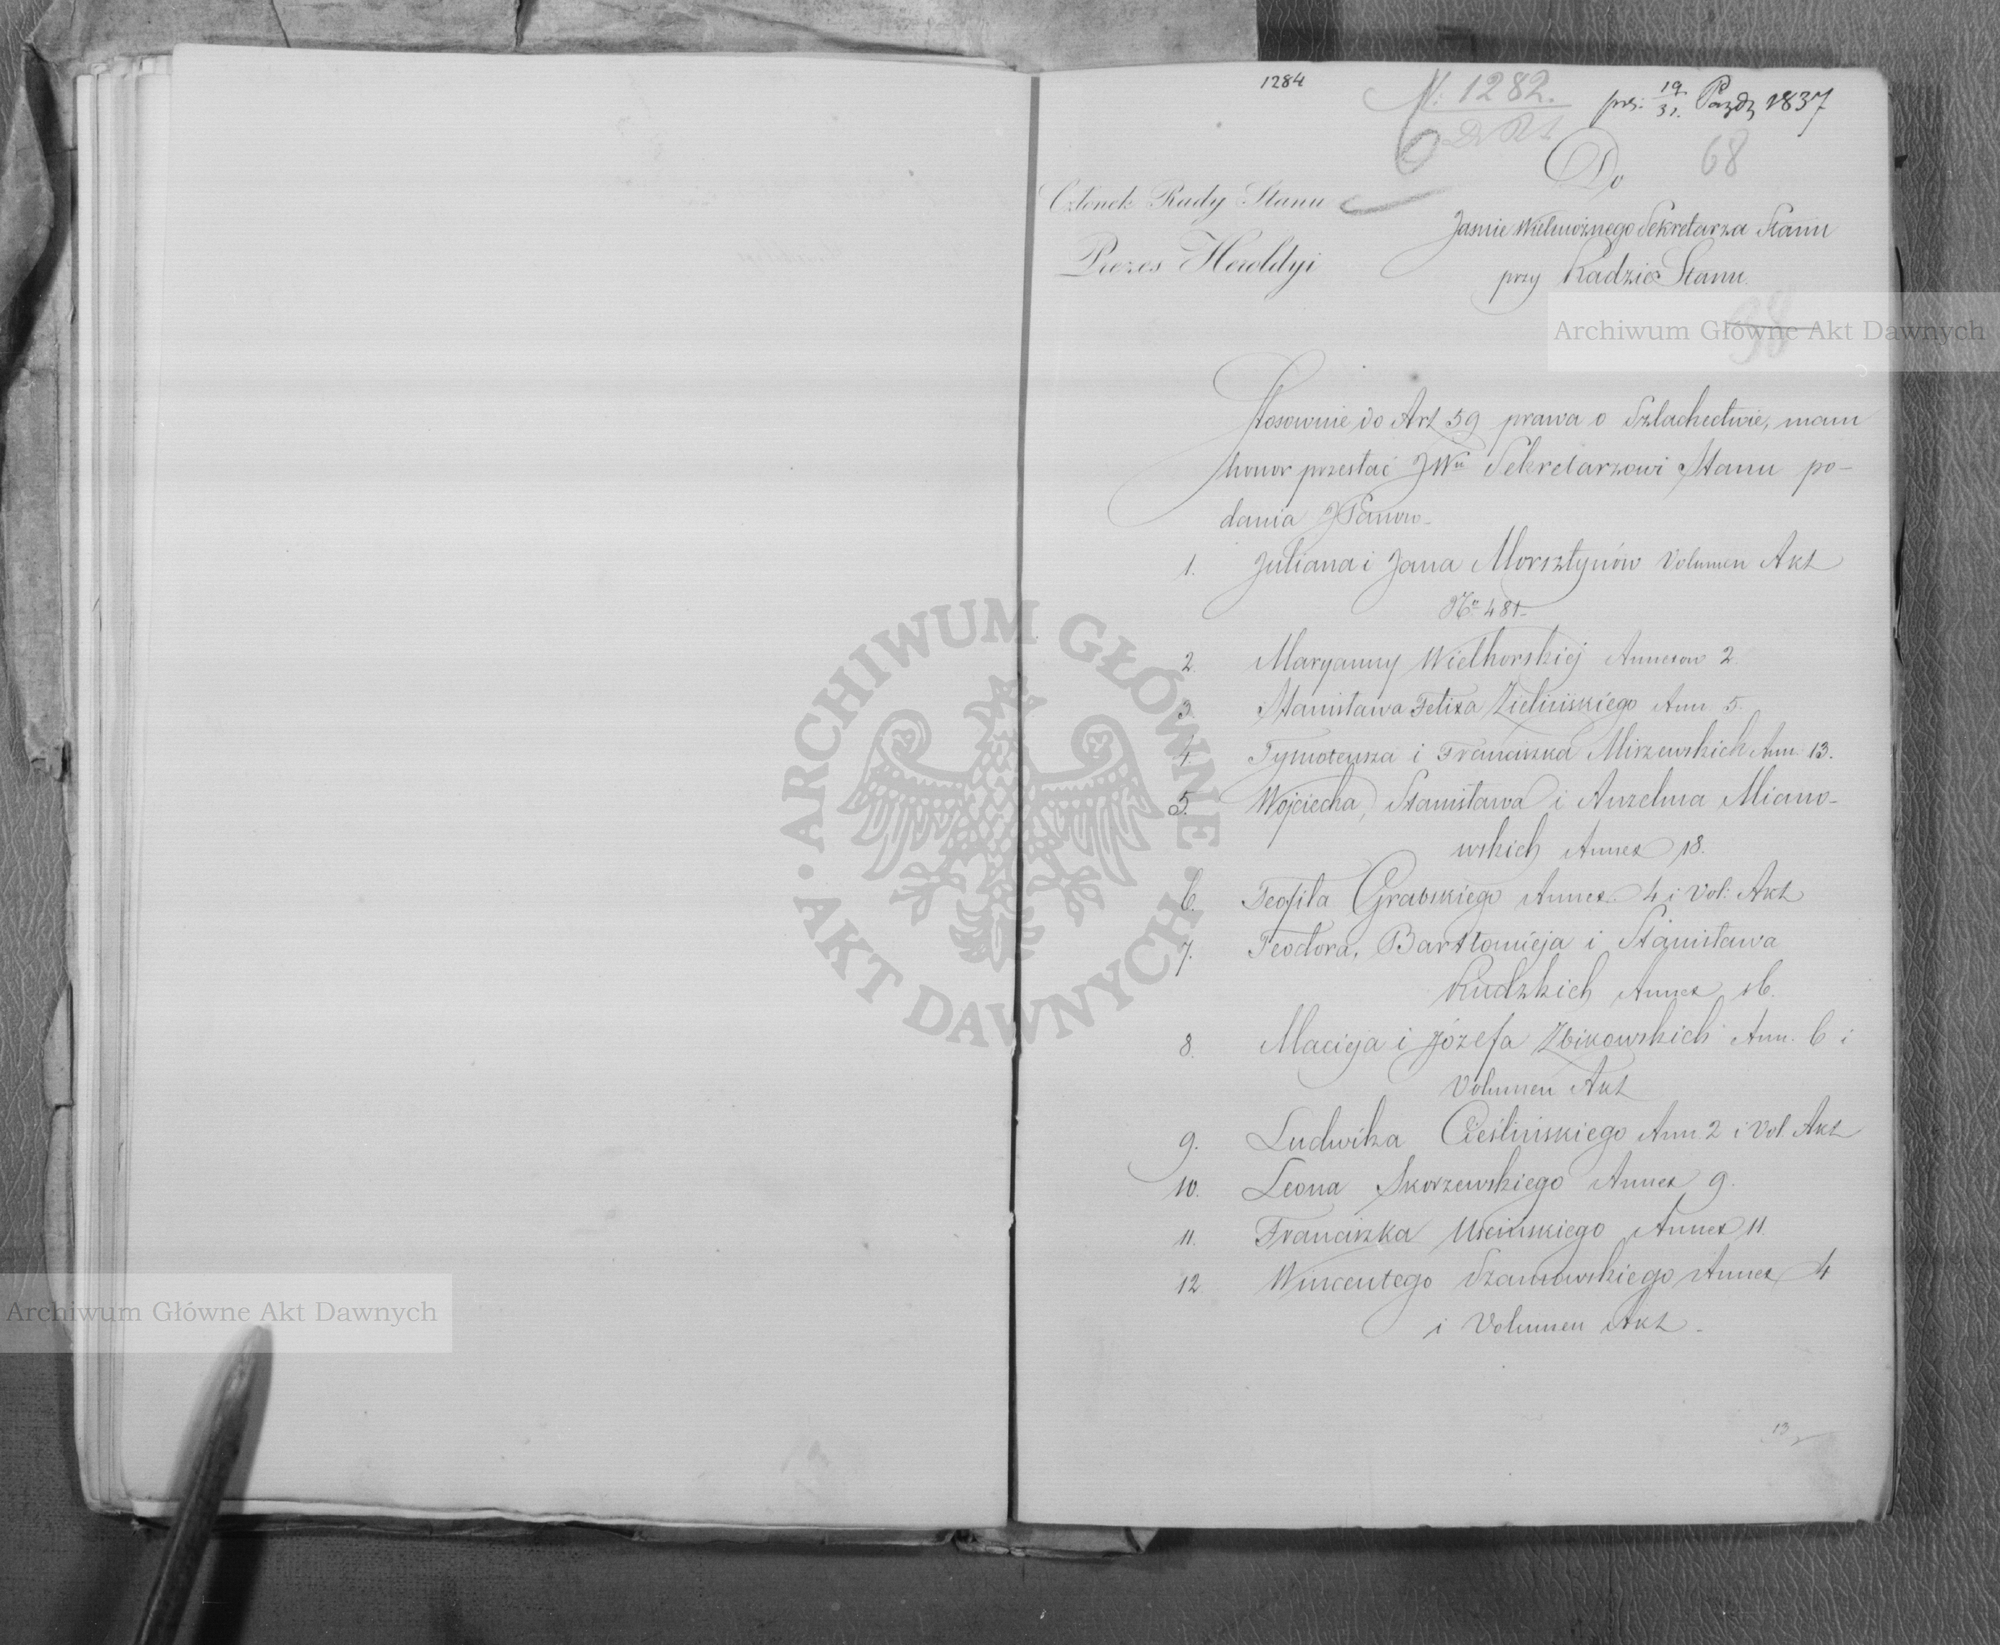 1284
N: 1282.
prz: 19/31. Pazdz 1837
68
Członek Rady Stanu
Prezes Heroldyi
Do
Jaśnie Wielmożnego Sekretarza Stanu
przy Radzie Stanu.
98
Stosownie do Art 59 prawa o Szlachectwie, mam
honor przesłać JWu Sekretarzowi Stanu po-
dania JPanow
1. Juliana i Jana Morsztynów Volumen Akt
No 481
2. Maryanny Wielhorskiej Annexow 2.
3. Stanisława Felixa Zielińskiego Ann. 5.
4. Tymoteusza i Franciszka Mirzewskich Ann. 13.
5. Wojciecha, Stanisława i Anzelma Miano-
wskich Annex 18.
6. Teofila Grabskiego Annex 4 i Vol: Akt
7. Teodora, Bartłomieja i Stanisława
Rudzkich Annex 16.
8. Macieja i Józefa Zbikowskich Ann. 6 i
Volumen Akt
9. Ludwika Cieślińskiego Ann. 2 i Vol. Akt
10. Leona Skorzewskiego Annex 9.
11. Franciszka Uscinskiego Annex 11
12 Wincentego Szanowskiego Annex 4
i Volumen Akt.
13
Archiwum Główne Akt Dawnych
Archiwum Główne Akt Dawnych
ARCHIWUM GŁÓWNE AKT DAWNYCH